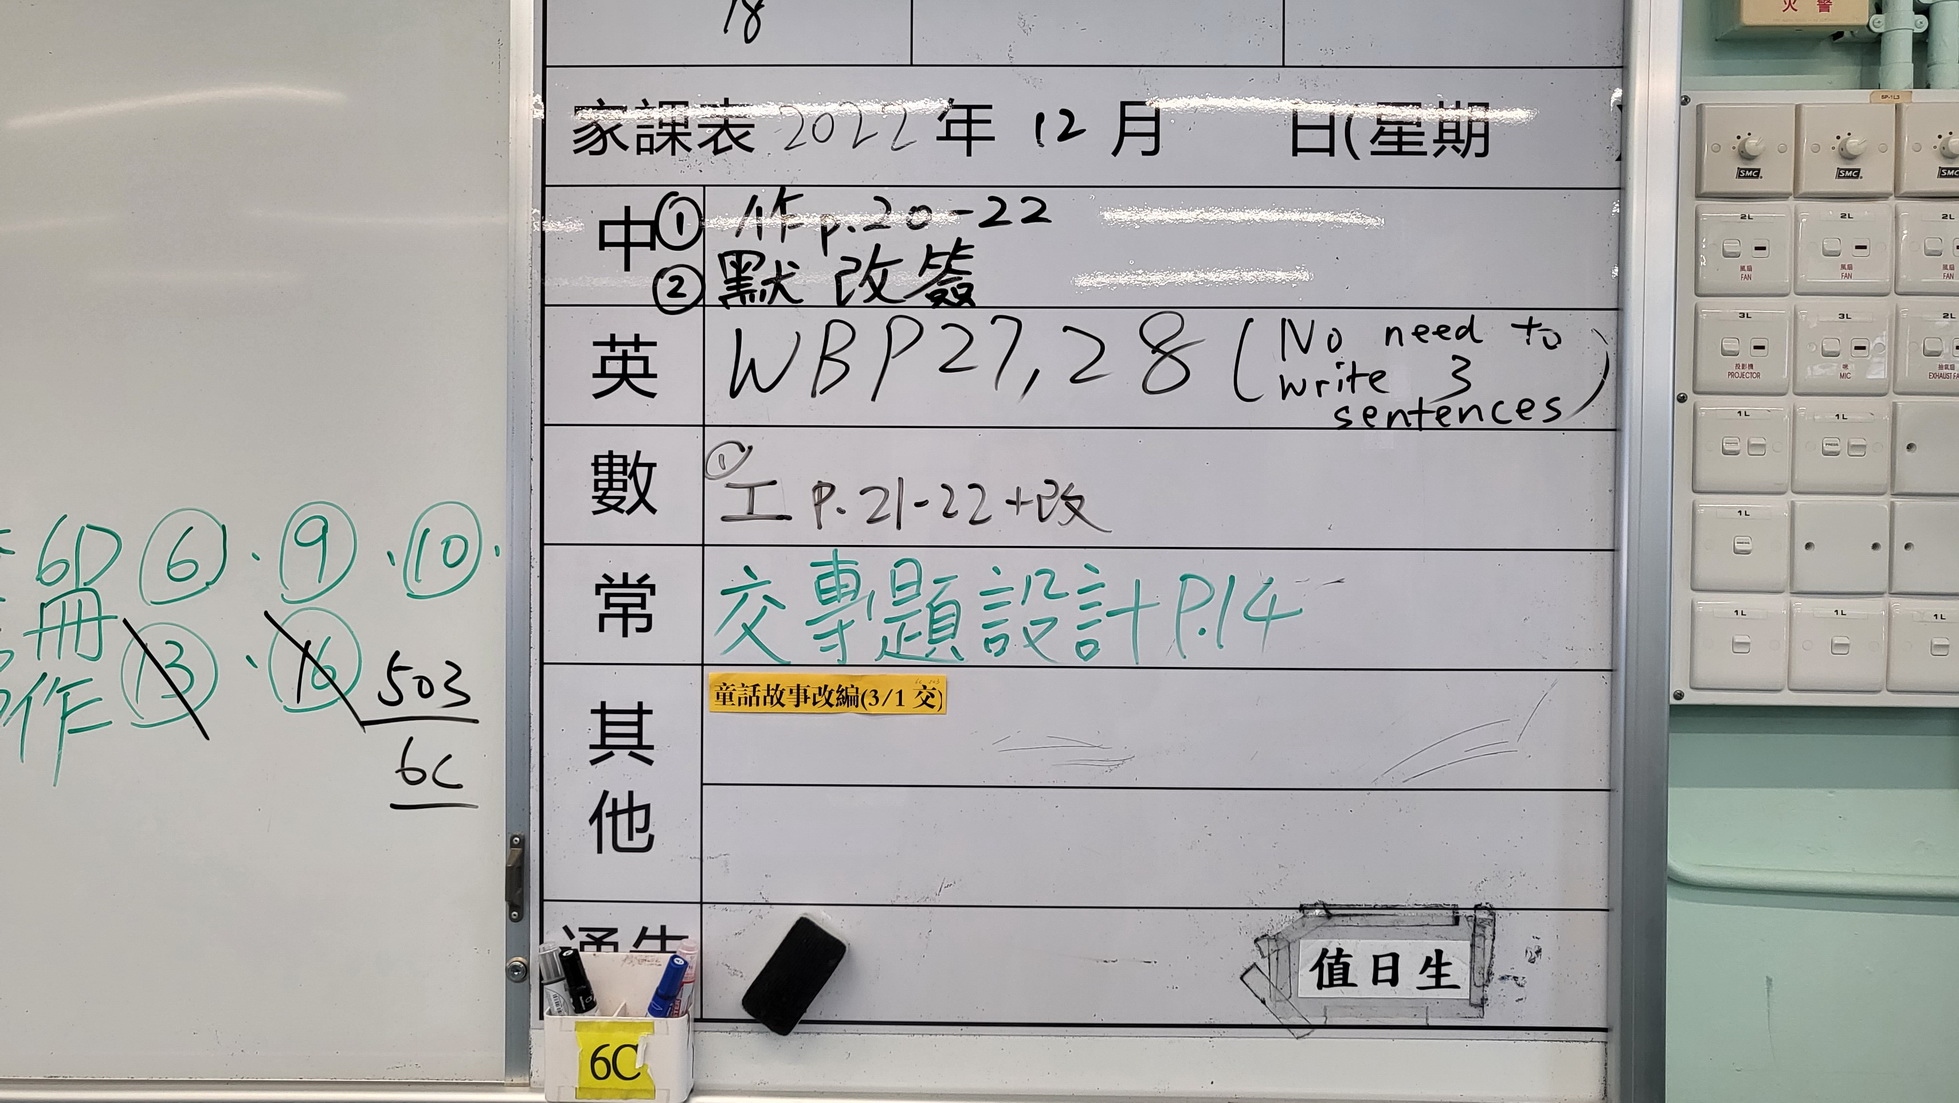 18
家課表 2022 年 12 月 日(星期 )
中 ① 作p.20-22
② 默 改簽
英 WBP27,28 (No need to write 3 sentences)
數 ① 工 P.21-22+改
常 交專題設計P.14
其他 童話故事改編(3/1 交)
通告
值日生
6C
6D ⑥ · ⑨ · ⑩ ·
冊 ⑬ · ⑯
作
503
6C
火 警
SMC SMC SMC
2L 2L 2L
風扇 風扇 風扇
FAN FAN FAN
3L 3L 2L
投影機 咪
PROJECTOR MIC EXHAUST FA
1L 1L
1L
1L 1L